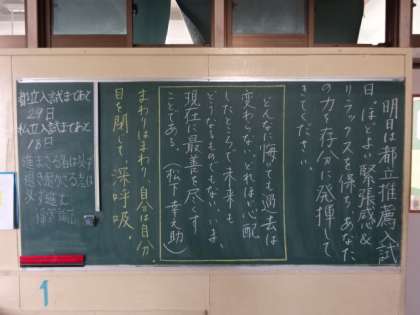 明日は都立推薦入試
日。ほどよい緊張感&
リラックスを保ち、あなた
の力を存分に発揮して
きてください。
どんなに悔いても過去は
変わらない。どれほど心配
したところで未来も
どうなるものでもない。いま、
現在に最善を尽くす
ことである。(松下幸之助)
まわりはまわり、自分は自分。
目を閉じて、深呼吸。
都立入試まであと
29日
私立入試まであと
18日
進まざる者は必ず
退き、退かざる者は
必ず進む
福沢諭吉
1